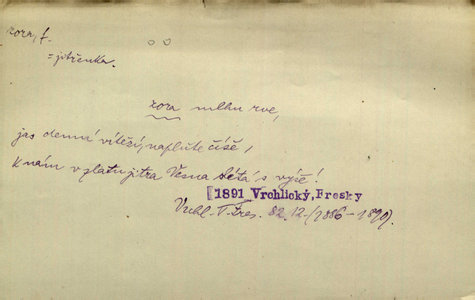 zora, f.
= jitřenka.
zora mlhu rve,
jas denní vítězí, naplňte číše,
K nám v zlatu jitra Vesna létá s výše!
1891 Vrchlický, Fresky
Vrchl. T. Fres. 82. 12. (1886–1890).